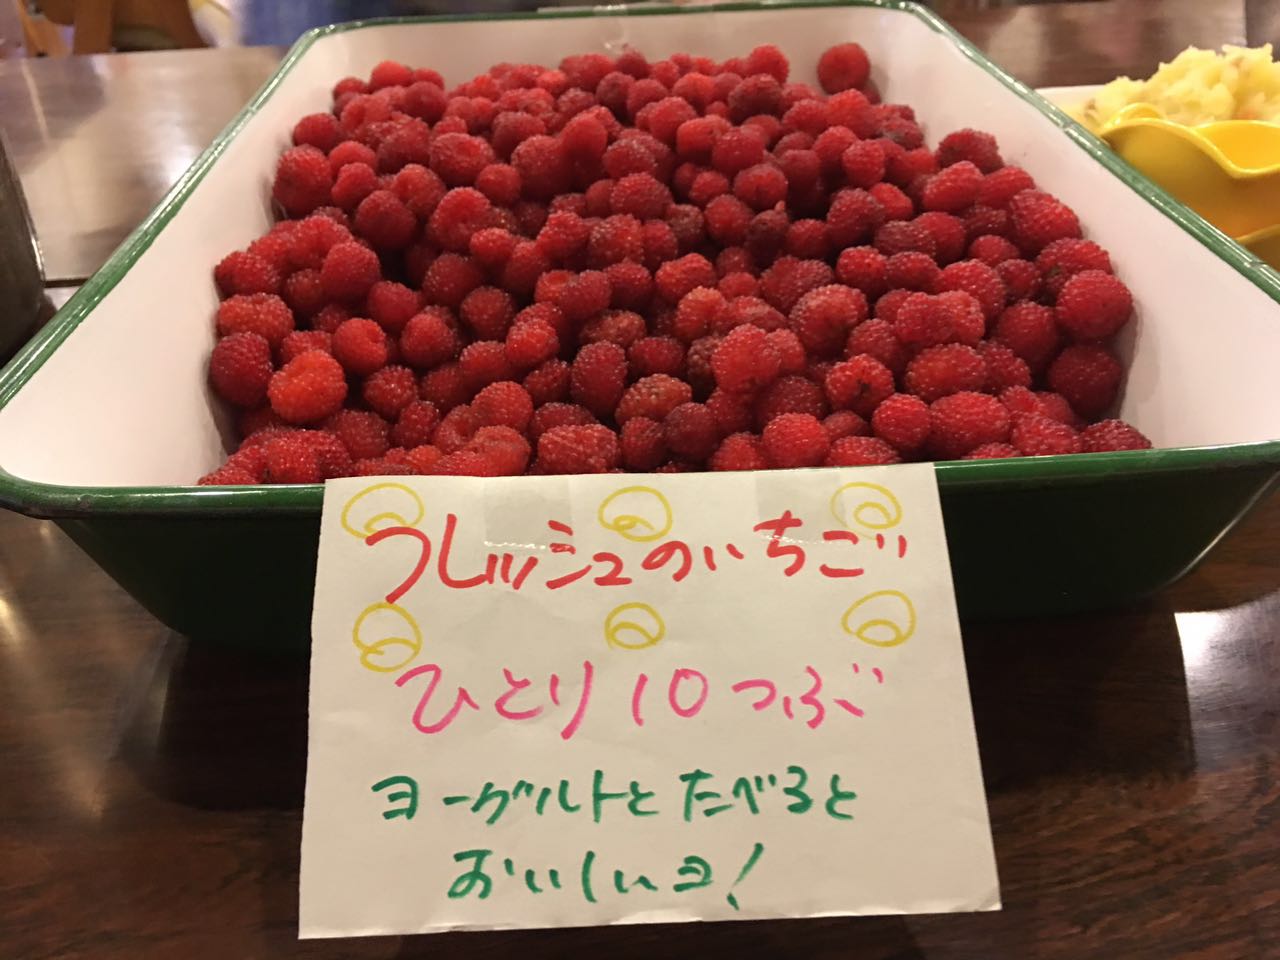 フレッシュのいちご
ひとり10つぶ
ヨーグルトとたべると
おいしいヨ!